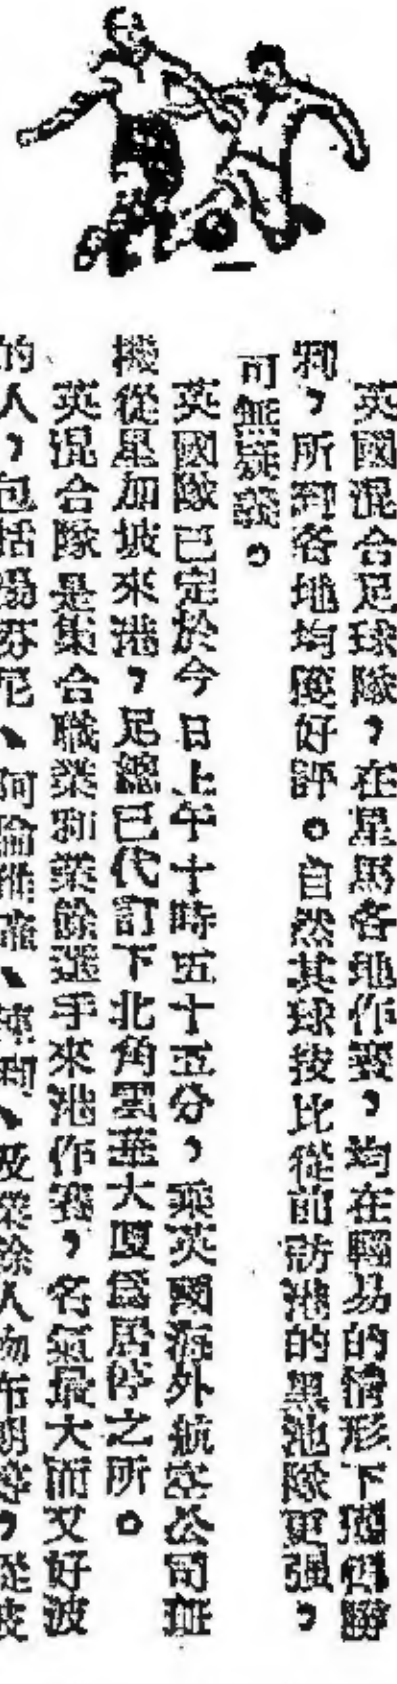 英國混合足球隊，在星馬各地作賽，均在輕易的情形下獲得勝
利，所到各地均獲好評。自然其球技比從前訪港的黑池隊更强，
可無疑義。
英國隊已定於今日上午十時五十五分，乘英國海外航空公司班
機從星加坡來港，足總已代訂下北角雲華大廈爲居停之所。
英混合隊是集合職業和業餘選手來港作賽，名氣最大而又好波
的人，包括湯芬尼、阿倫、及業餘人物布朗等，從